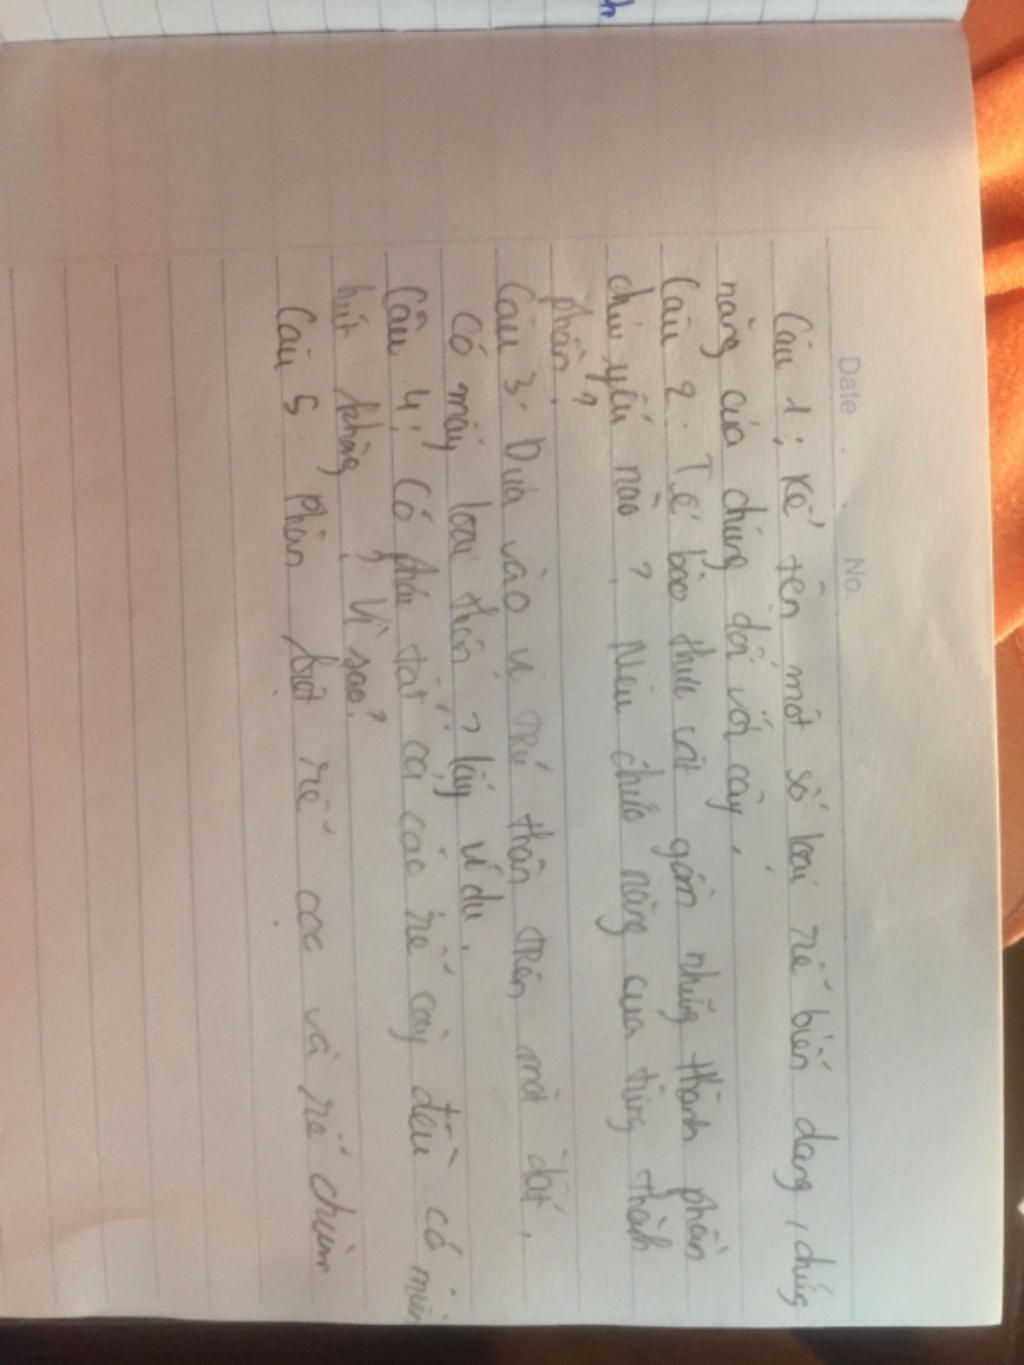 Date No.
Câu 1: Kể tên một số loại rễ biến dạng, chức
năng của chúng đối với cây.
Câu 2: Tế bào thực vật gồm những thành phần
chủ yếu nào? Nêu chức năng của từng thành
phần?
Câu 3: Dựa vào vị trí thân trên mặt đất,
có mấy loại thân? lấy ví dụ.
Câu 4: Có phải tất cả các rễ cây đều có miền
hút không? Vì sao?
Câu 5 Phân biệt rễ cọc và rễ chùm